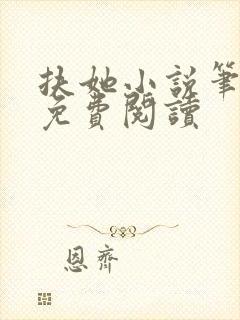 扶她小説筆
免費閱讀
恩齊